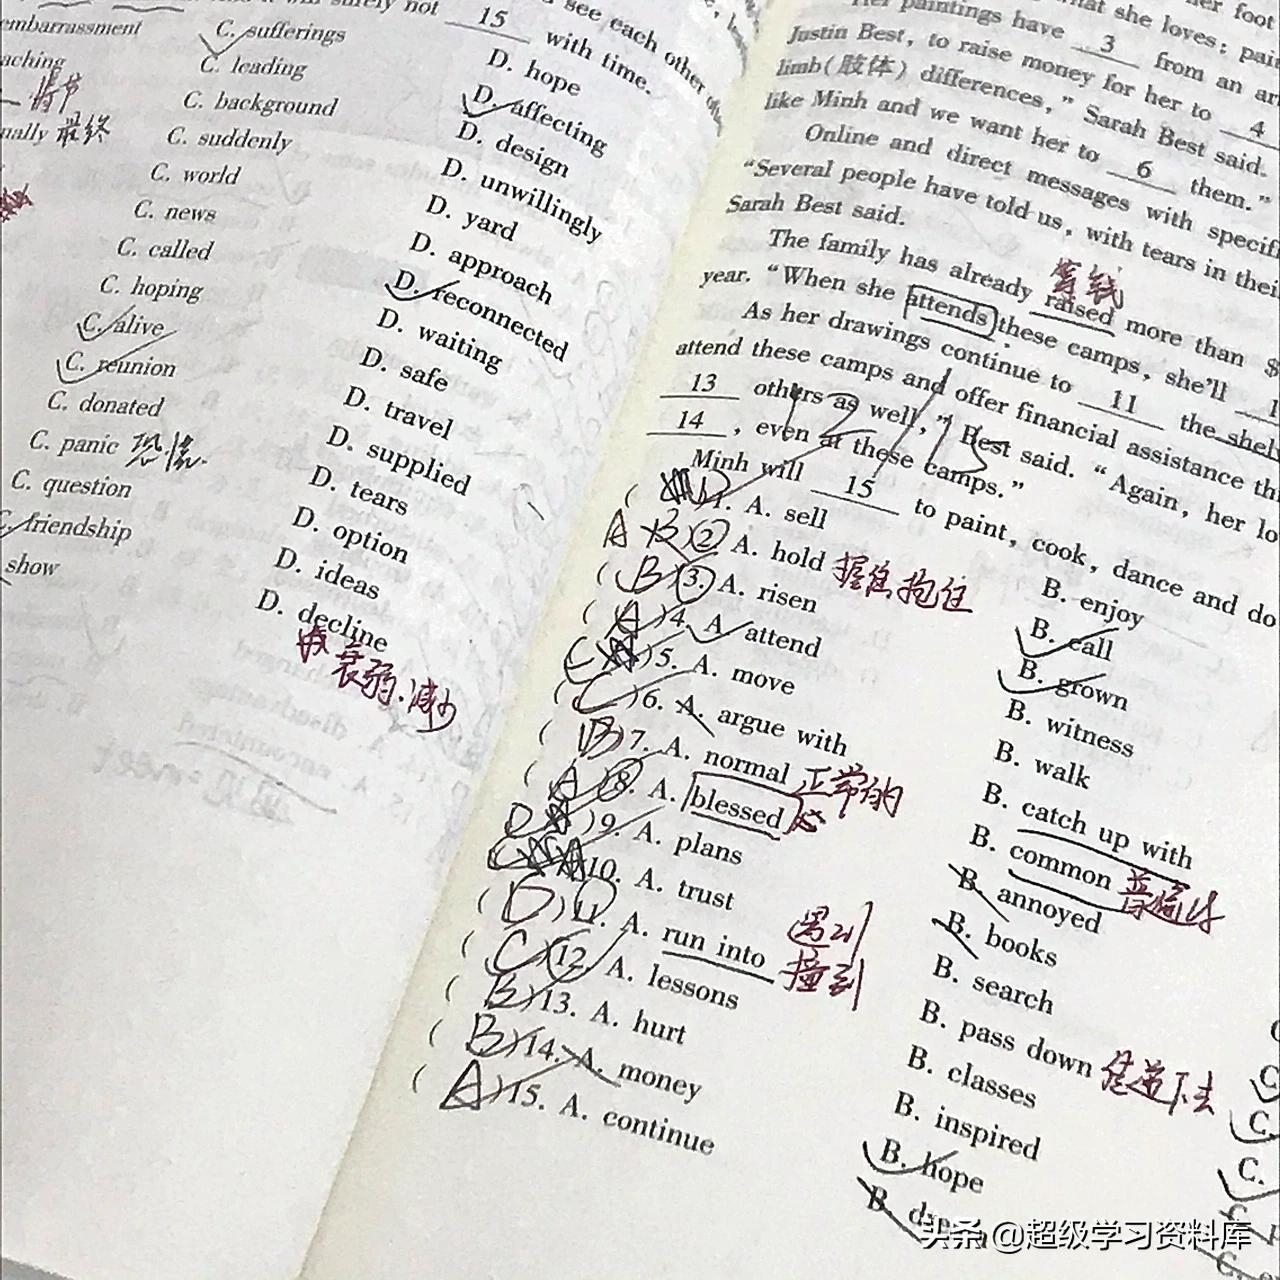 see each other
surely not 15 with time.
embarrassment C. sufferings D. hope
aching C. leading D. affecting
C. background D. design
nally 最终 C. suddenly D. unwillingly
C. world D. yard
C. news D. approach
C. called D. reconnected
C. hoping D. waiting
C. alive D. safe
C. reunion D. travel
C. donated D. supplied
C. panic 恐慌 D. tears
C. question D. option
C. friendship D. ideas
show D. decline
衰弱.减少
her foot
what she loves: pai
Her paintings have 3 from an ar
Justin Best, to raise money for her to 4
limb(肢体) differences," Sarah Best said.
like Minh and we want her to 6 them."
Online and direct messages with specifi
"Several people have told us, with tears in thei
Sarah Best said.
The family has already raised more than $
筹钱
year. "When she attends these camps, she'll
As her drawings continue to 11 the shel
attend these camps and offer financial assistance th
13 others as well," Best said. "Again, her lo
14 , even at these camps."
Minh will 15 to paint, cook, dance and do
1. A. sell B. enjoy
A B 2 A. hold 握住 抱住 B. call
( B ) 3. A. risen B. grown
( A ) 4. A. attend B. witness
C ) 5. A. move B. walk
( C ) 6. A. argue with B. catch up with
( B ) 7. A. normal 正常的 B. common 普通的
( A ) 8. A. blessed B. annoyed
D ) 9. A. plans B. books
C 10. A. trust B. search
( D ) 11. A. run into 遇到 撞到 B. pass down 传递下去
( C ) 12 A. lessons B. classes
( B ) 13. A. hurt B. inspired
( B ) 14. A. money B. hope
( A ) 15. A. continue
头条 @超级学习资料库